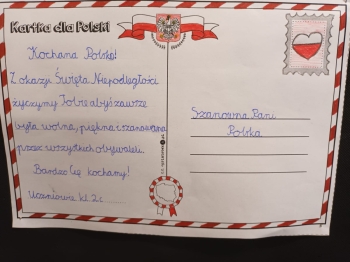 Kartka dla Polski
Kochana Polsko!
Z okazji Święta Niepodległości
życzymy Tobie abyś zawsze
była wolna, piękna i szanowana
przez wszystkich obywateli.
Bardzo Cię kochamy!
Uczniowie kl 2c
Szanowna Pani
Polska